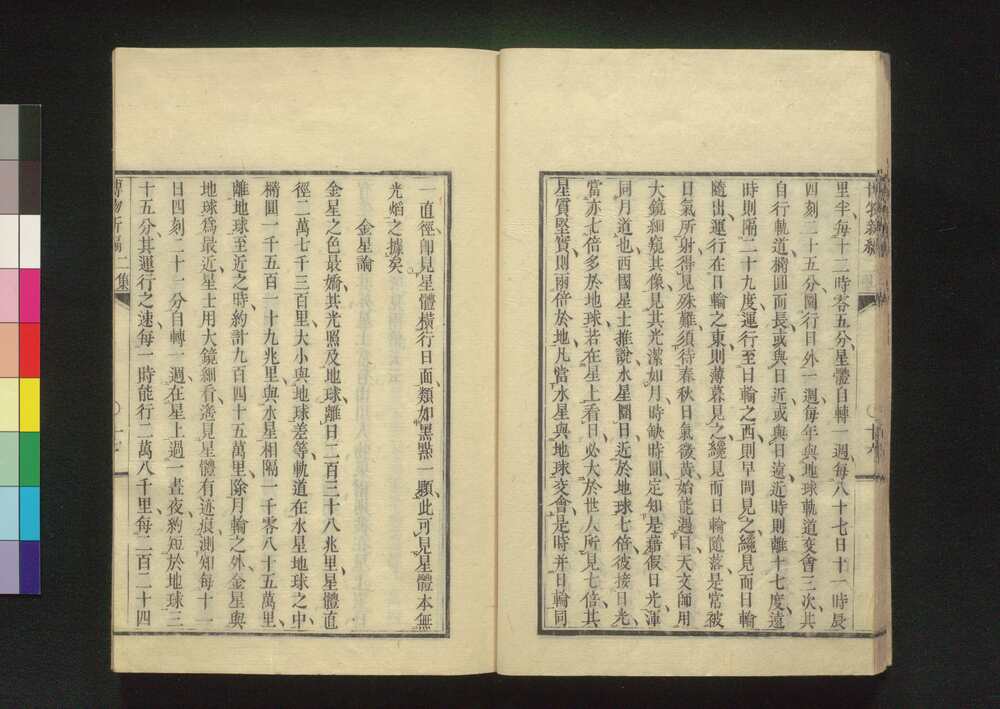 里半每十二時零五分星體自轉一週每八十七日十一時辰
四刻二十五分圜行日外一週每年與地球軌道交會三次其
自行軌道橢圓而長或與日近或與日遠近時則離十七度遠
時則隔二十九度運行至日輪之西則早間見之纔見而日輪
隨出運行在日輪之東則薄暮見之纔見而日輪隨落是常被
日氣所射得見殊難須待春秋日氣微黃始能過目天文師用
大鏡細窺其像見其光潔如月時缺時圓定知是藉假日光渾
同月道也西國星士推說水星圜日近於地球七倍彼接日光
當亦七倍多於地球若在星上看日必大於世人所見七倍其
星質堅實則兩倍於地凡當水星與地球交會是時并日輪同
一直徑卽見星體橫行日面類如黑點一顆此可見星體本無
光熖之據矣
金星論
金星之色最嬌其光照及地球離日二百三十八兆里星體直
徑二萬七千三百里大小與地球差等軌道在水星地球之中
橢圓一千五百一十九兆里與水星相隔一千零八十五萬里
離地球至近之時約計九百四十五萬里除月輪之外金星與
地球爲最近星士用大鏡細看濷見星體有迹痕測知每十一
日四刻二十一分自轉一週在星上過一晝夜約短於地球三
十五分其運行之速每一時能行二萬八千里每二百二十四
博物新編二集